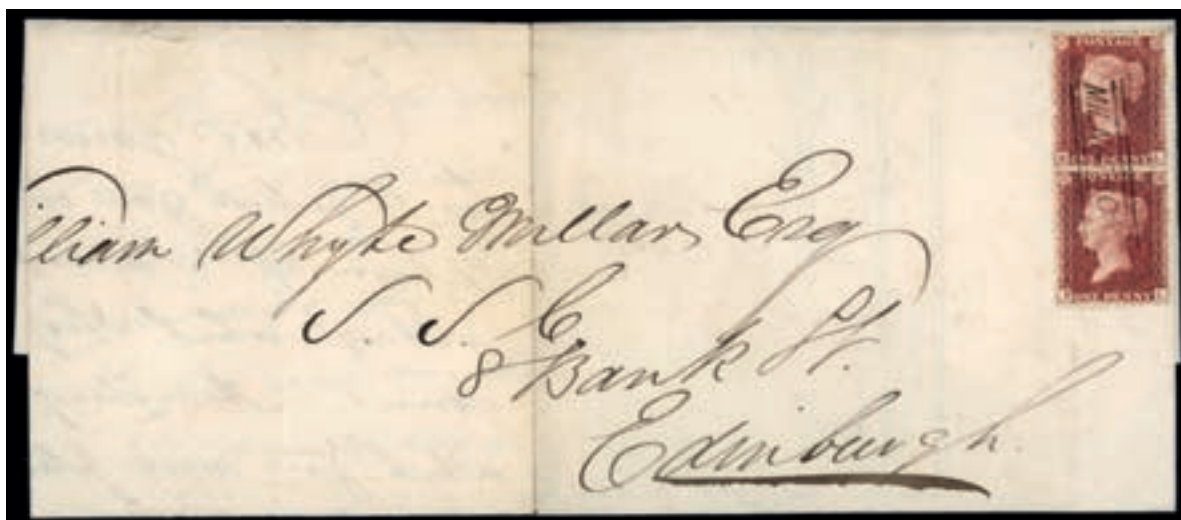 lliam Whyte Millar Esq
S. S. C
8 Bank St.
Edinburgh.
POSTAGE
ONE PENNY
ONE PENNY